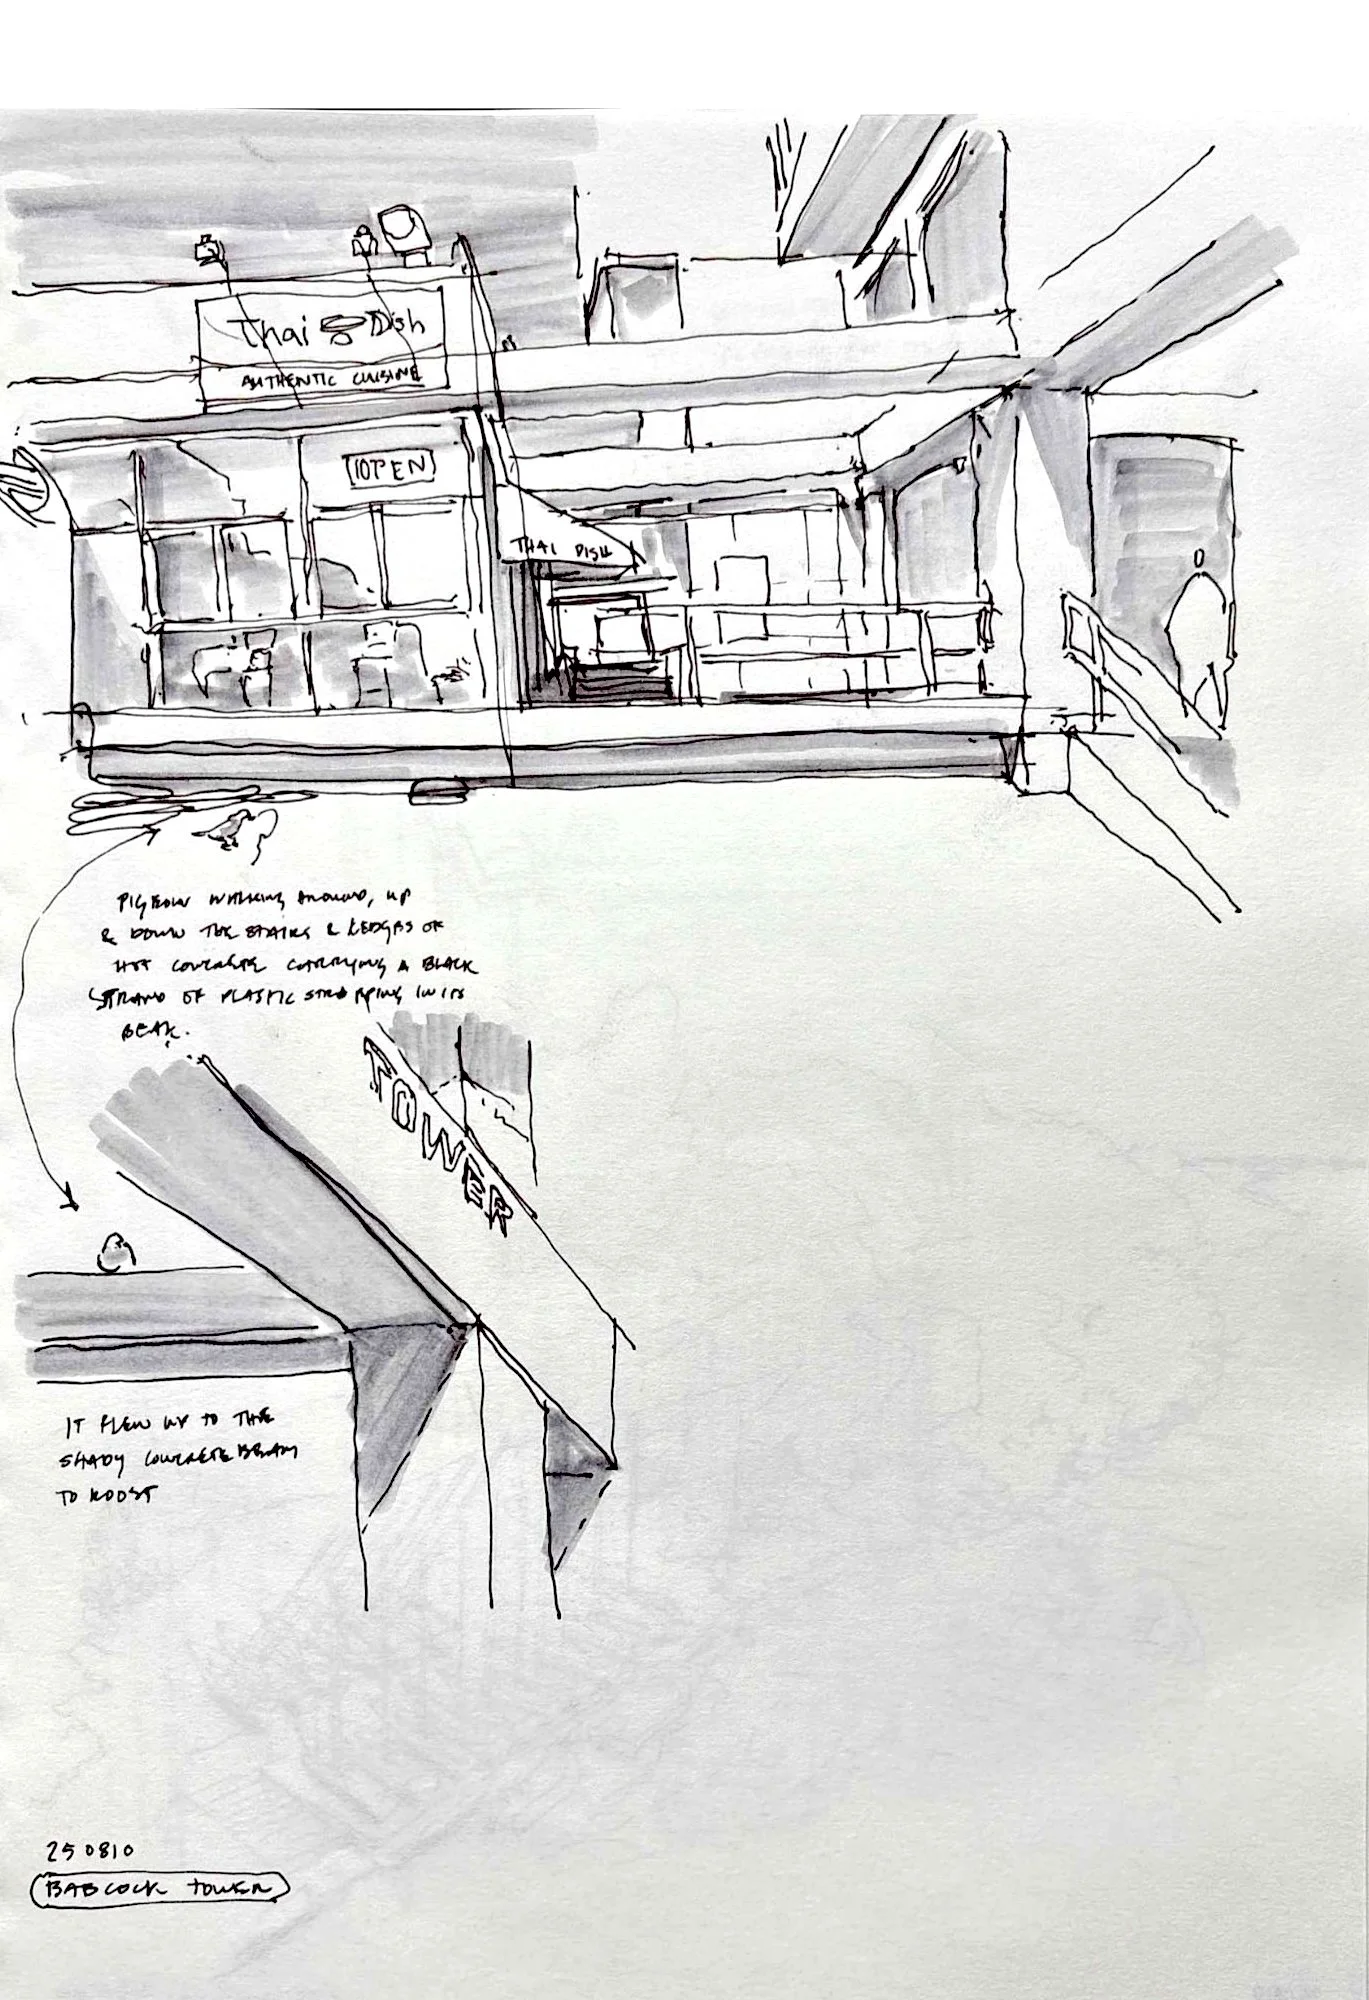 Thai Dish
AUTHENTIC CUISINE
OPEN
THAI DISH
PIGEON WALKING AROUND, UP
& DOWN THE STAIRS & LEDGES OF
HOT CONCRETE CARRYING A BLACK
STRAND OF PLASTIC STRAPPING IN ITS
BEAK.
TOWER
IT FLEW UP TO THE
SHADY CONCRETE BEAM
TO ROOST
250810
BABCOCK TOWER